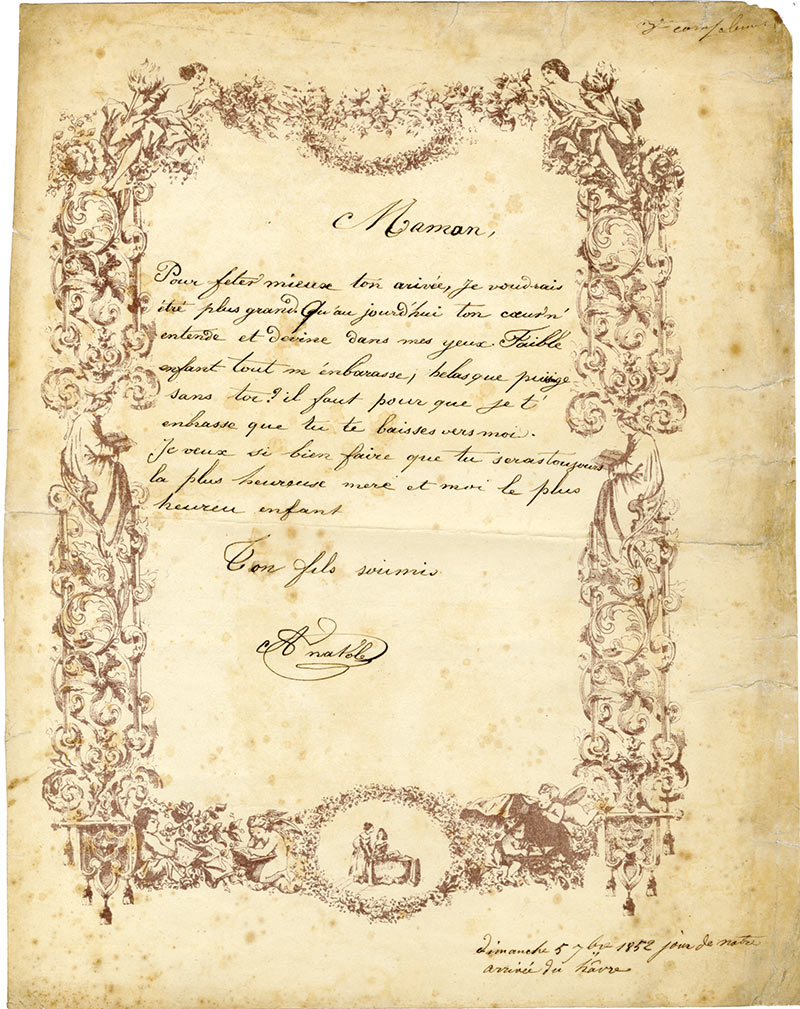 Maman,
Pour fêter mieux ton arivée, je voudrais
être plus grand. Qu'au jourd'hui ton cœur n'
entende et devine dans mes yeux. Faible
enfant tout m'énbarasse, helas que puige
sans toi? il faut pour que je t'
enbrasse que tu te baisses vers moi.
Je veux si bien faire que tu seras toujours
la plus heureuse meré et moi le plus
heureu enfant
Ton fils soumis
Anatole
dimanche 5 7bre 1852 jour de notre
arrivée du hâvre